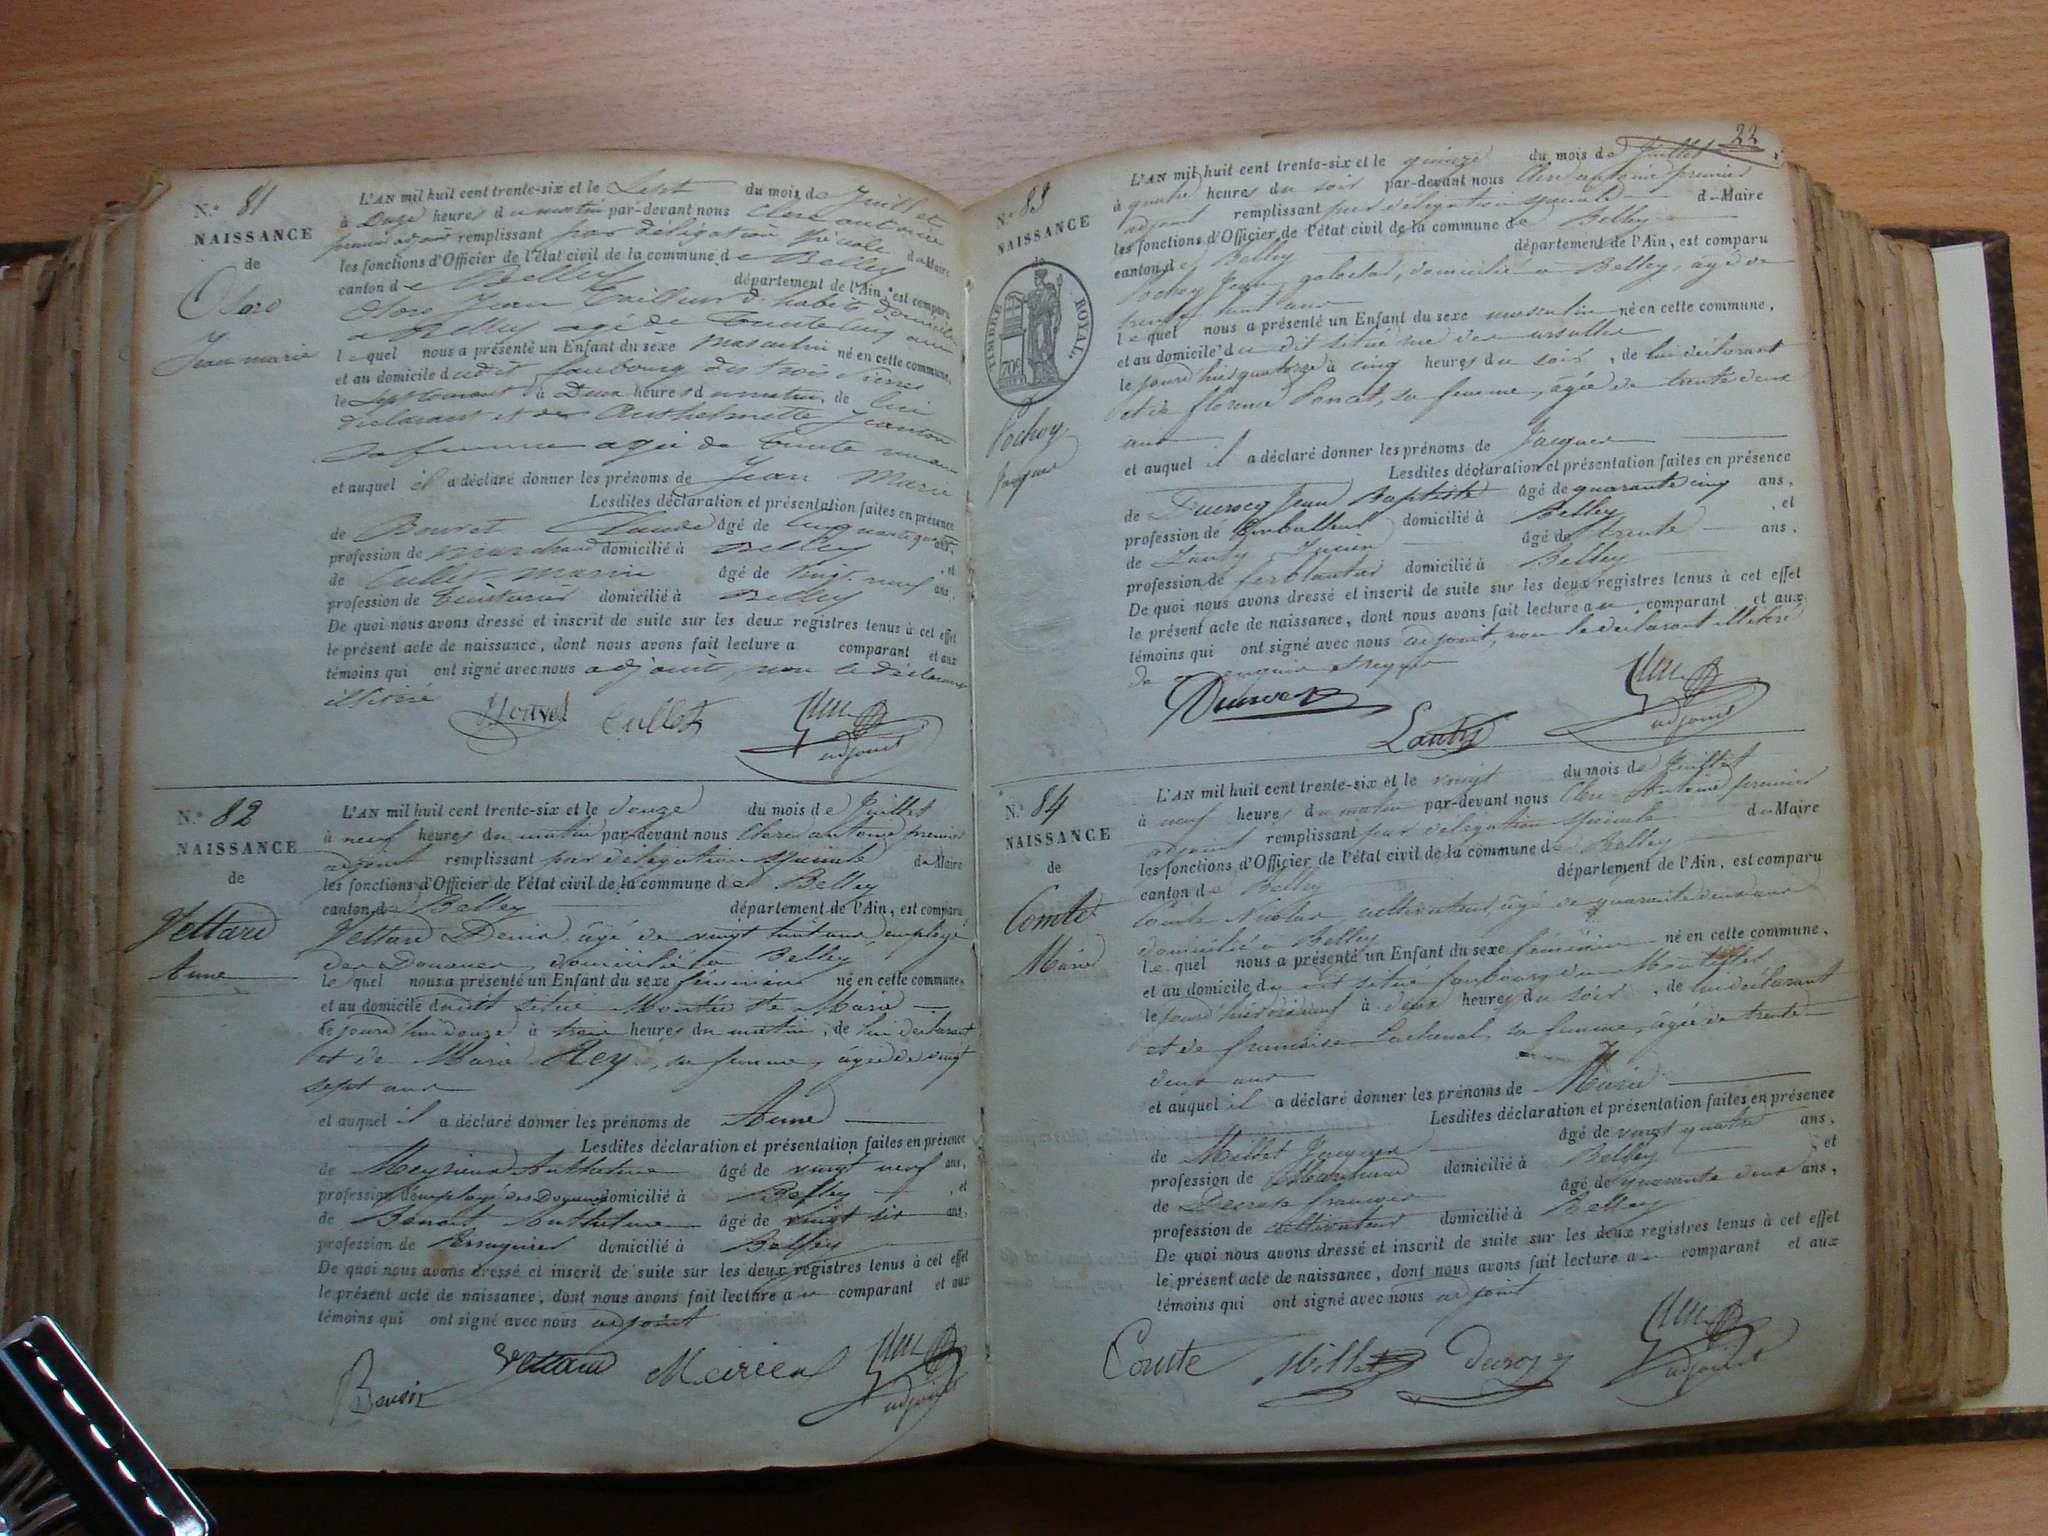 N.° 81
NAISSANCE
de
Jean marie
L'AN mil huit cent trente-six et le Sept du mois de Juillet
à Onze heures du matin par-devant nous Clerc antoine
premier adjoint remplissant par délégation spéciale du Maire
les fonctions d'Officier de l'état civil de la commune de Belley
canton de Belley département de l'Ain, est comparu
Jean tailleur d'habits domicilié
à Belley agé de trente cinq ans
lequel nous a présenté un Enfant du sexe masculin né en cette commune,
et au domicile dudit faubourg des trois
le Sept courant à Deux heures du matin, de lui
déclarant et de Anthelmette Jeanton
sa femme agée de trente un ans
et auquel il a déclaré donner les prénoms de Jean Marie
Lesdites déclaration et présentation faites en présence
de Bouvet Claude âgé de cinquante quatre ans,
profession de marchand domicilié à Belley , et
de Cullet Marin âgé de vingt neuf ans,
profession de teinturier domicilié à Belley
De quoi nous avons dressé et inscrit de suite sur les deux registres tenus à cet effet
le présent acte de naissance, dont nous avons fait lecture a comparant et aux
témoins qui ont signé avec nous adjoint, non le déclarant
illitéré
Cullet
adjoint
N.° 82
NAISSANCE
de
Vettard
Anne
L'AN mil huit cent trente-six et le douze du mois de Juillet
à neuf heures du matin par-devant nous Clerc antoine premier
adjoint remplissant par délégation spéciale du Maire
les fonctions d'Officier de l'état civil de la commune de Belley
canton de Belley département de l'Ain, est comparu
Vettard Denis, âgé de vingt huit ans, employé
des Douanes, domicilié à Belley
lequel nous a présenté un Enfant du sexe féminin né en cette commune,
et au domicile dudit situé Montée Ste Marie
le jourd'hui douze à trois heures du matin, de lui déclarant
et de Marie Rey, sa femme, âgée de vingt
sept ans
et auquel il a déclaré donner les prénoms de Anne
Lesdites déclaration et présentation faites en présence
de Meyrieux Anthelme âgé de vingt neuf ans,
profession d'employé des Douanes domicilié à Belley , et
de Benoit Anthelme âgé de vingt six ans,
profession de domicilié à Belley
De quoi nous avons dressé et inscrit de suite sur les deux registres tenus à cet effet
le présent acte de naissance, dont nous avons fait lecture au comparant et aux
témoins qui ont signé avec nous adjoint
Benoit Vettard Meirieu
adjoint
22
N.° 83
NAISSANCE
de
TIMBRE ROYAL
70c
Pochoy
Jacques
L'AN mil huit cent trente-six et le quinze du mois de Juillet
à quatre heures du soir par-devant nous Clerc antoine premier
adjoint remplissant par délégation spéciale du Maire
les fonctions d'Officier de l'état civil de la commune de Belley
canton de Belley département de l'Ain, est comparu
Pochoy Jean, domicilié à Belley, âgé de
trente huit ans
lequel nous a présenté un Enfant du sexe masculin né en cette commune,
et au domicile du dit situé rue des ursules
le jourd'hui quatorze à cinq heures du soir, de lui déclarant
et de florence Poncet, sa femme, âgée de trente deux
ans
et auquel il a déclaré donner les prénoms de Jacques
Lesdites déclaration et présentation faites en présence
de Jean Baptiste âgé de quarante cinq ans,
profession d'emballeur domicilié à Belley , et
de Lanty Lucien âgé de trente ans,
profession de ferblantier domicilié à Belley
De quoi nous avons dressé et inscrit de suite sur les deux registres tenus à cet effet
le présent acte de naissance, dont nous avons fait lecture au comparant et aux
témoins qui ont signé avec nous adjoint, non le déclarant illitéré
de ce enquis et requis
Lanty
adjoint
N.° 84
NAISSANCE
de
Comte
Marie
L'AN mil huit cent trente-six et le vingt du mois de Juillet
à neuf heures du matin par-devant nous Clerc Antoine premier
adjoint remplissant par délégation spéciale du Maire
les fonctions d'Officier de l'état civil de la commune de Belley
canton de Belley département de l'Ain, est comparu
Comte Nicolas, cultivateur, âgé de quarante deux ans
domicilié à Belley
lequel nous a présenté un Enfant du sexe féminin né en cette commune,
et au domicile du dit situé faubourg du
le jourd'hier dix neuf à deux heures du soir, de lui déclarant
et de françoise Lachenal, sa femme, âgée de trente
deux ans
et auquel il a déclaré donner les prénoms de Marie
Lesdites déclaration et présentation faites en présence
de Millet Jacques âgé de vingt quatre ans,
profession de Marchand domicilié à Belley , et
de françois âgé de quarante deux ans,
profession de cultivateur domicilié à Belley
De quoi nous avons dressé et inscrit de suite sur les deux registres tenus à cet effet
le présent acte de naissance, dont nous avons fait lecture au comparant et aux
témoins qui ont signé avec nous adjoint
Comte Millet
adjoint